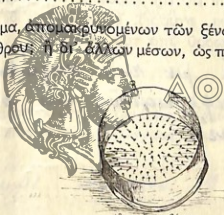 μα, ἀπομακρυνομένων τῶν ξένω
θρου; ἢ δι᾽ ἄλλων μέσων, ὡς π